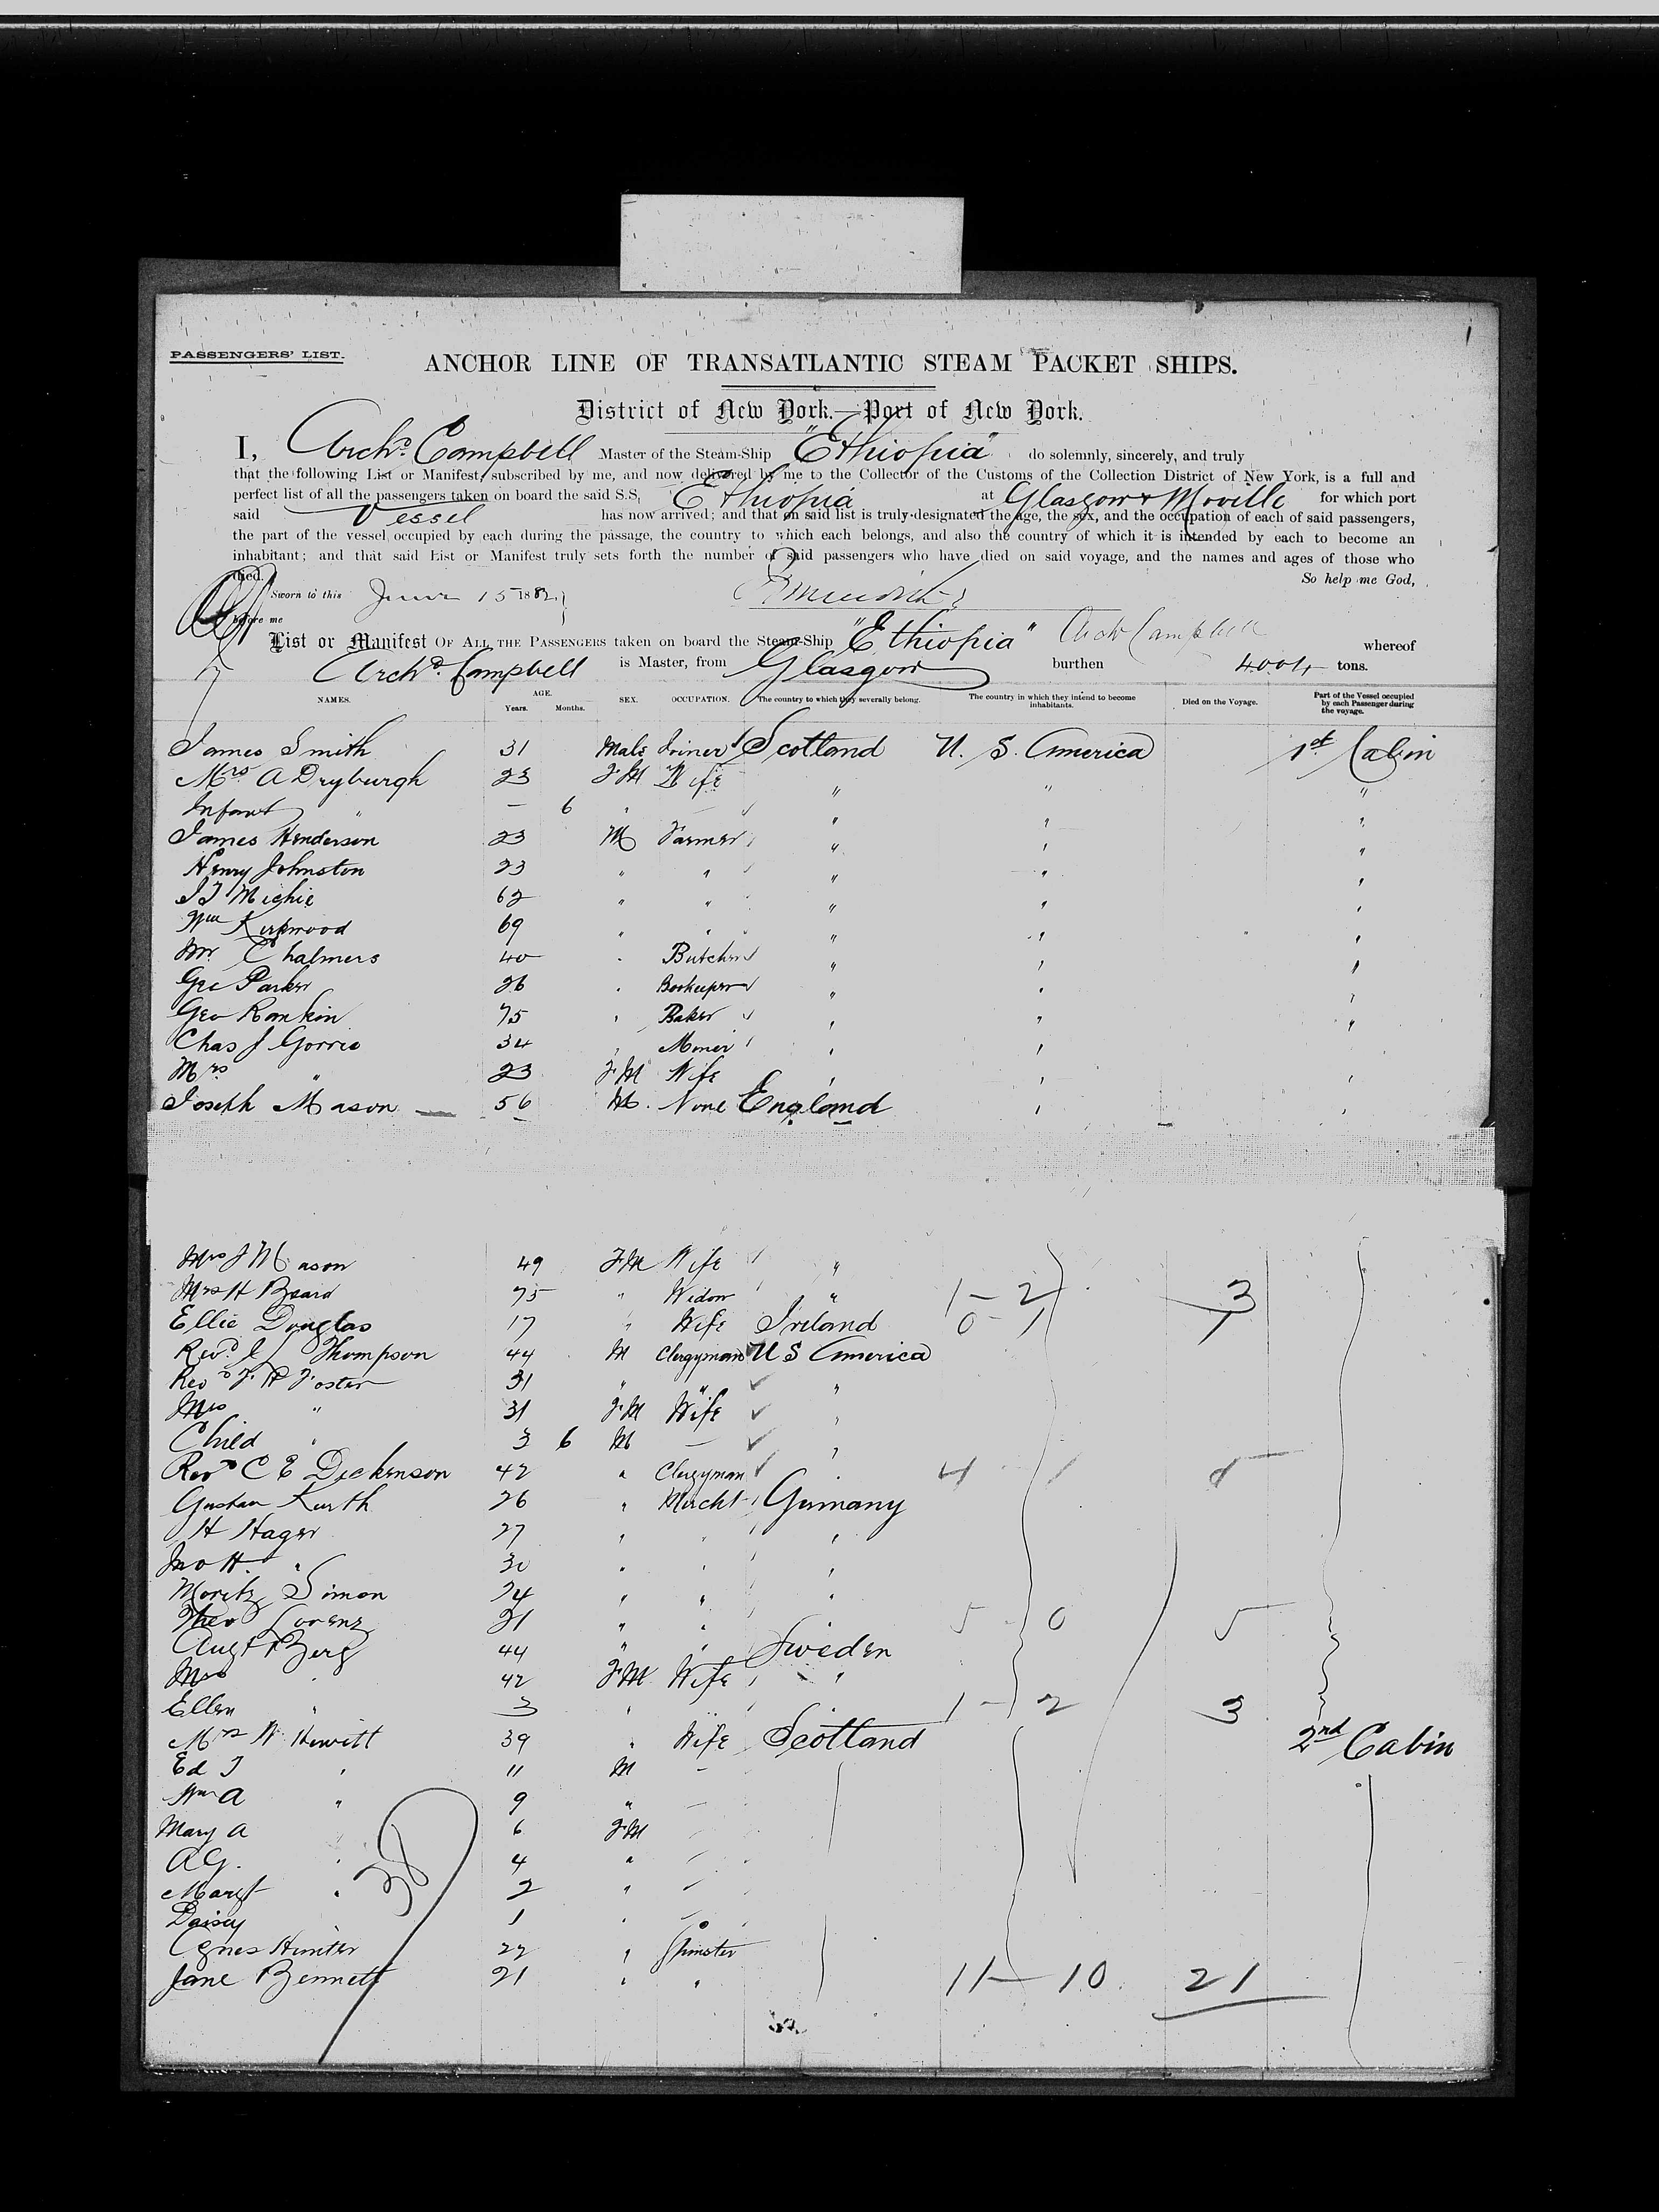 1
PASSENGERS' LIST.
ANCHOR LINE OF TRANSATLANTIC STEAM PACKET SHIPS.
District of New York.—Port of New York.
I, Archd. Campbell Master of the Steam-Ship "Ethiopia" do solemnly, sincerely, and truly
that the following List or Manifest, subscribed by me, and now delivered by me to the Collector of the Customs of the Collection District of New York, is a full and
perfect list of all the passengers taken on board the said S.S. Ethiopia at Glasgow & Moville for which port
said Vessel has now arrived; and that on said list is truly designated the age, the sex, and the occupation of each of said passengers,
the part of the vessel occupied by each during the passage, the country to which each belongs, and also the country of which it is intended by each to become an
inhabitant; and that said List or Manifest truly sets forth the number of said passengers who have died on said voyage, and the names and ages of those who
died. So help me God,
Sworn to this June 15 1882
before me
Arch Campbell
List or Manifest OF ALL THE PASSENGERS taken on board the Steam-Ship "Ethiopia" whereof
Archd. Campbell is Master, from Glasgow burthen 4004 tons.
NAMES. AGE. Years. Months. SEX. OCCUPATION. The country to which they severally belong. The country in which they intend to become inhabitants. Died on the Voyage. Part of the Vessel occupied by each Passenger during the voyage.
James Smith 31 Male Joiner Scotland U. S. America 1st Cabin
Mrs A Dryburgh 23 FM Wife " " "
Infant " — 6 " — " " "
James Henderson 23 M Farmer " " "
Henry Johnston 23 " " " " "
J T Michie 62 " " " " "
Wm Kirkwood 69 " " " " "
Mr Chalmers 40 " Butcher " " "
Geo Parker 26 " Bookeeper " " "
Geo Rankin 75 " Baker " " "
Chas J Gorrie 34 " Moner " "
Mrs " 23 FM Wife " " "
Joseph Mason 56 M. None England " "
Mrs J Mason 49 FM Wife "
Mrs H Beard 75 " Widow " 1 - 2 3
Ellie Douglas 17 " Wife Ireland 0 - 1 1
Revd J Thompson 44 M Clergyman U S America
Revd F H Foster 31 " " "
Mrs " 31 FM Wife "
Child " 3 6 M — "
Revd C E Dickenson 42 " Clergyman " 4 1 5
Gustav Kurth 26 " Mercht Germany
H Hager 27 " " "
Jno H. " 30 " " "
Moritz Simon 24 " " "
Theo Lorenz 21 " " " 5 - 0 5
Augt Berg 44 " " Sweden
Mrs " 42 FM Wife "
Ellen " 3 " " 1 - 2 3
Mrs W Hewitt 39 " Wife Scotland 2nd Cabin
Ed J " 11 M -
Wm A " 9 " —
Mary A " 6 FM
A G. " 4 "
Margt " 2 "
Daisy 1 "
Agnes Hunter 22 " Spinster
Jane Bennett 21 " " 11 - 10 21
38